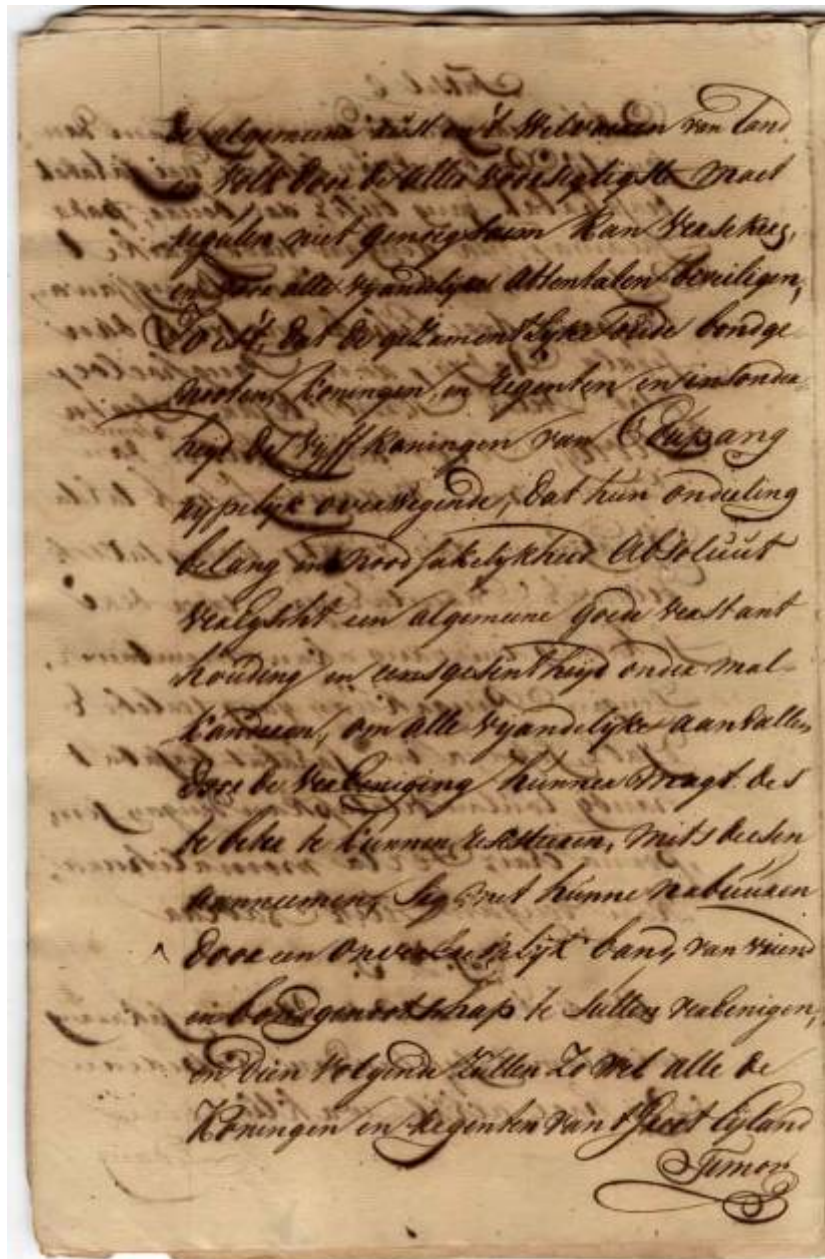 de algemeene rust en 't Welweesen van Land
en Volk door de aller voorsigtigste maat
regulen niet genoegsaam kan versekerg,
en voor alle vyandelyke Attentaten beveiligen;
Zo is't, dat de gezamentlyke oude bondge
nooten, koningen, en Regenten en insonder
heyd de vyff koningen van Coupang
rypelyk overwegende, dat hun onderling
belang en noodsakelykheid Absoluut
verEyscht een algemeene goede verstant
houding en eensgesentheyd onder mal-
kanderen, om alle vyandelyke aanvallen
door de vereeniging hunner magt des
te beter te kunnen resisteeren, mits deesen
aanneemen, sig met hunne nabuuren
door een onverbreekelyk band, van vriend
en bondgenootschap te sullen verbenigen,
en dien volgende zullen zo wel alle de
Koningen en Regenten van 't Groot Eyland
Timor